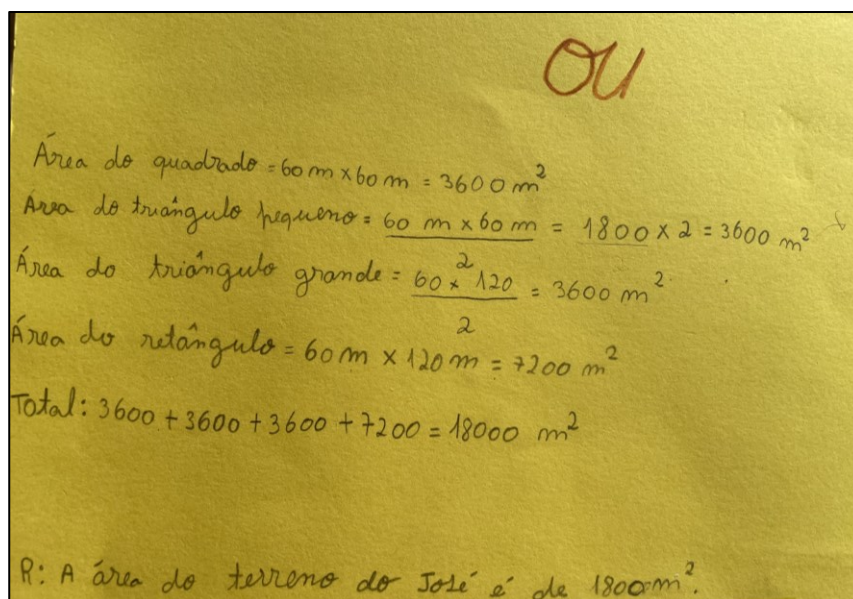 OU
Área do quadrado = 60 m × 60 m = 3600 m²
Área do triângulo pequeno = 60 m × 60 m / 2 = 1800 × 2 = 3600 m²
Área do triângulo grande = 60 × 120 / 2 = 3600 m²
Área do retângulo = 60 m × 120 m = 7200 m²
Total: 3600 + 3600 + 3600 + 7200 = 18000 m²
R: A área do terreno do José é de 1800 m².